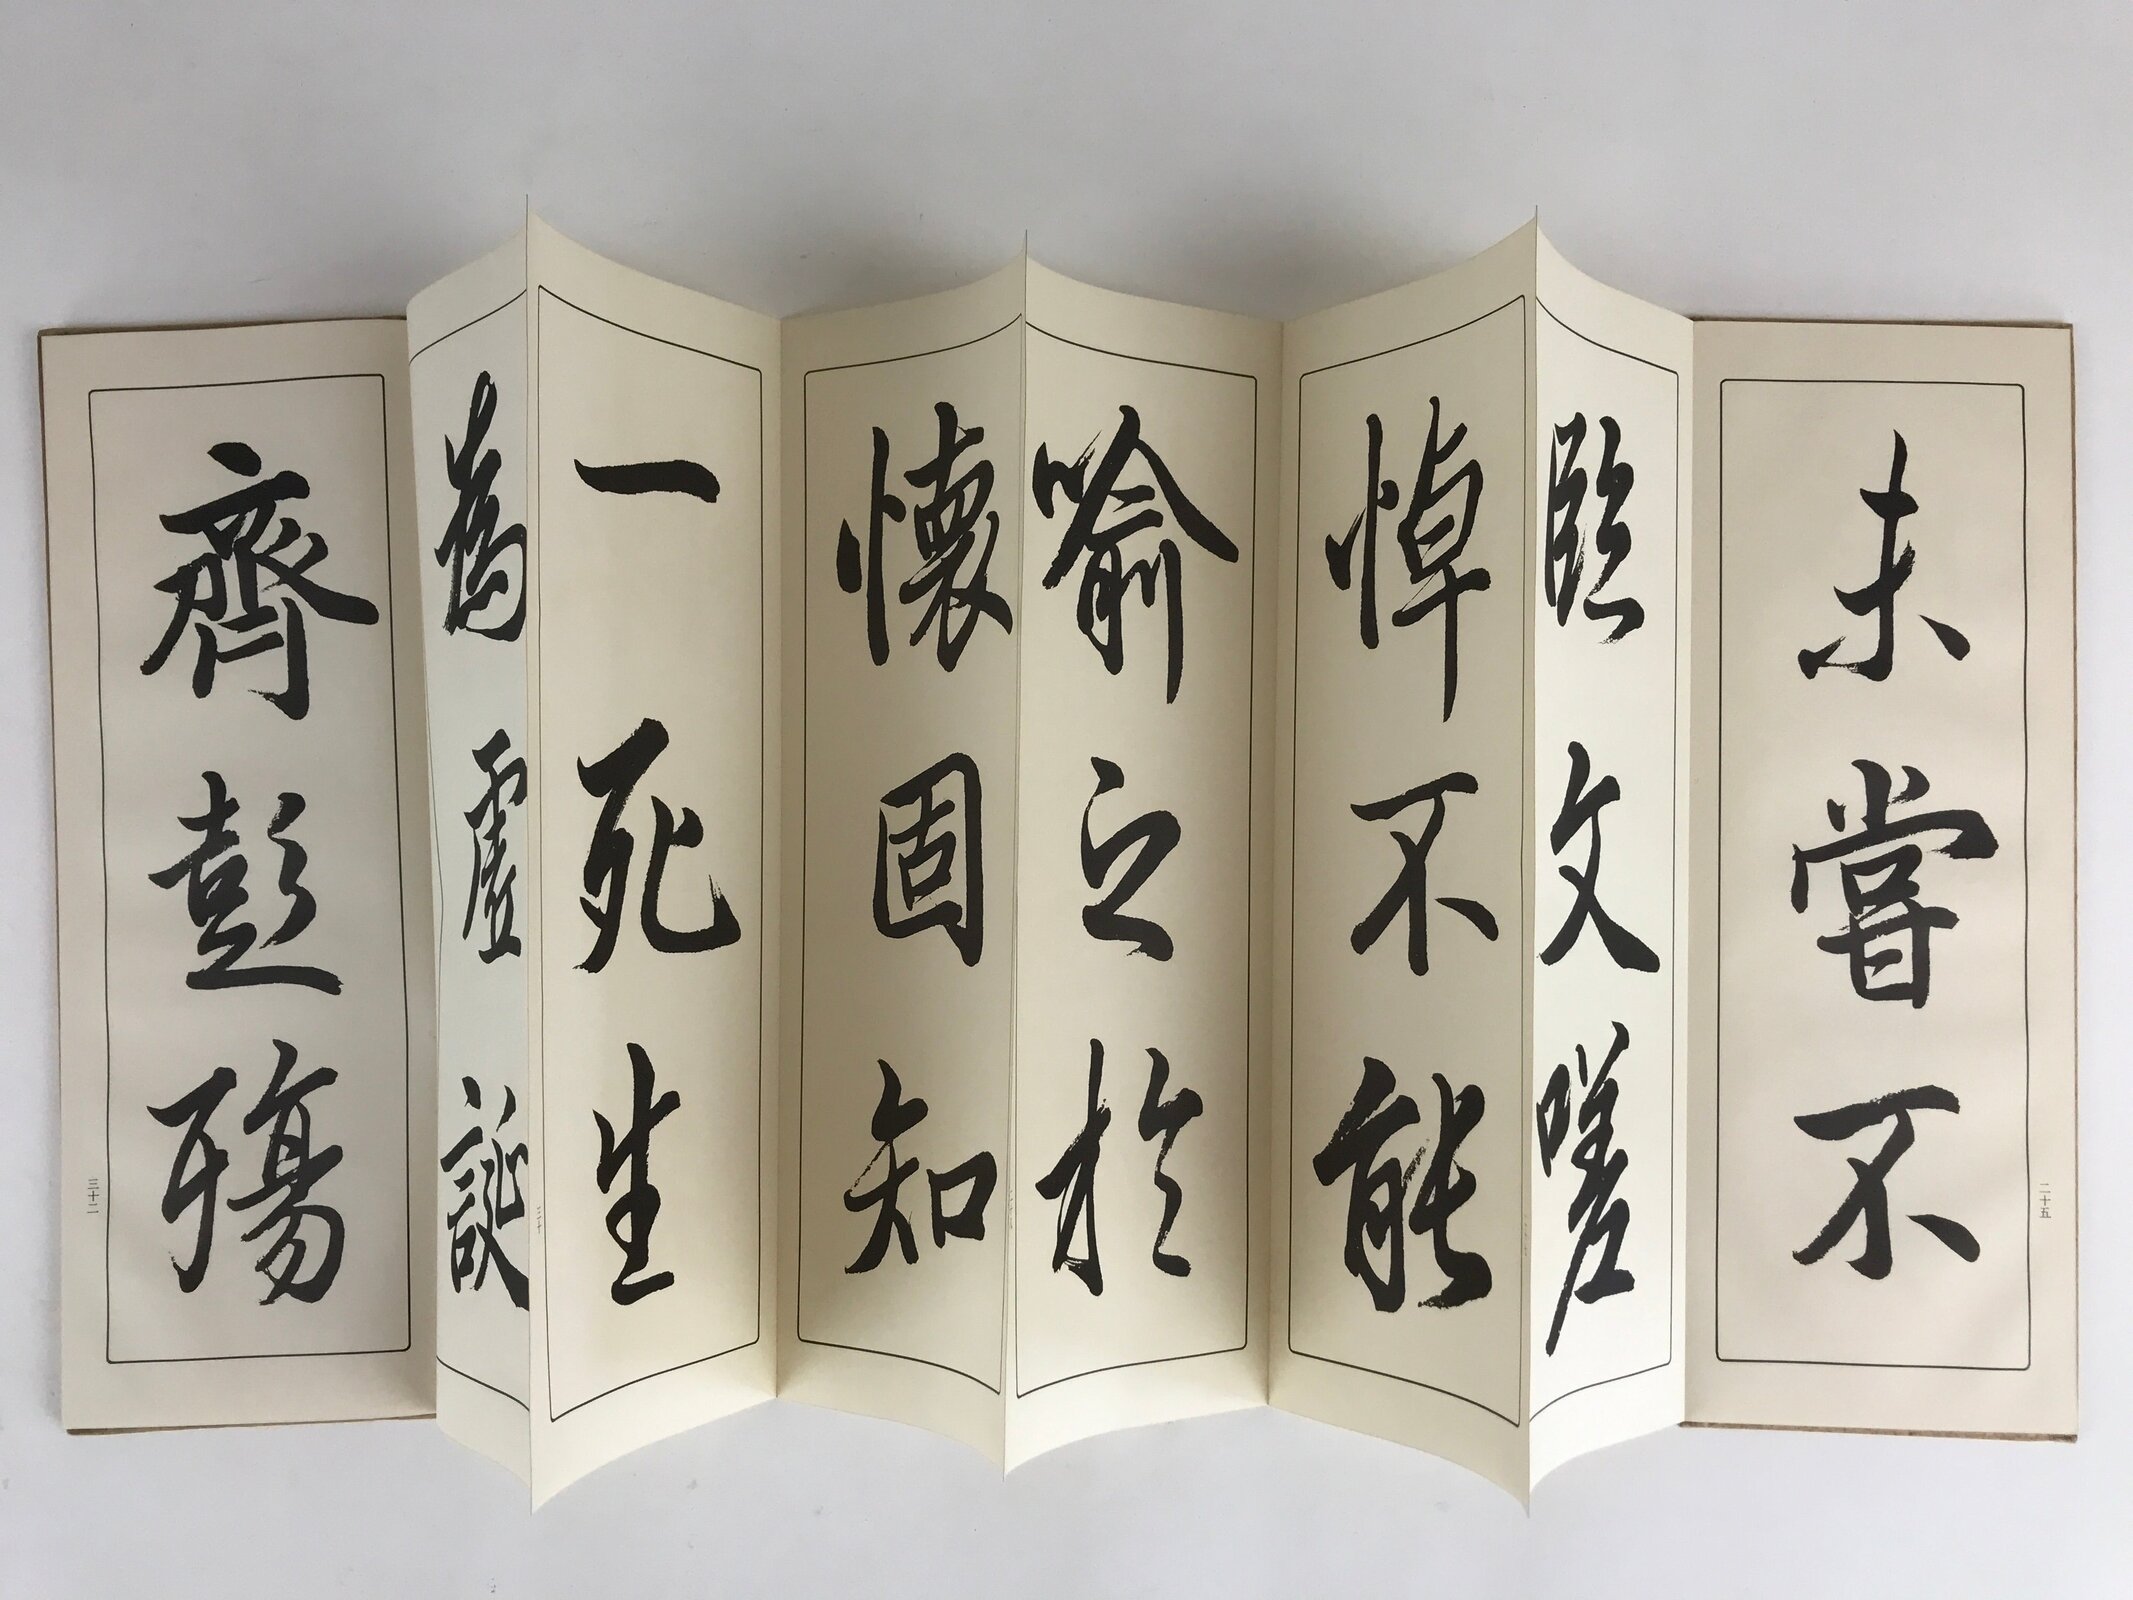 未嘗不
臨文嗟
悼不能
喻之於
懷固知
一死生
為虛誕
齊彭殤
二十五
三十二